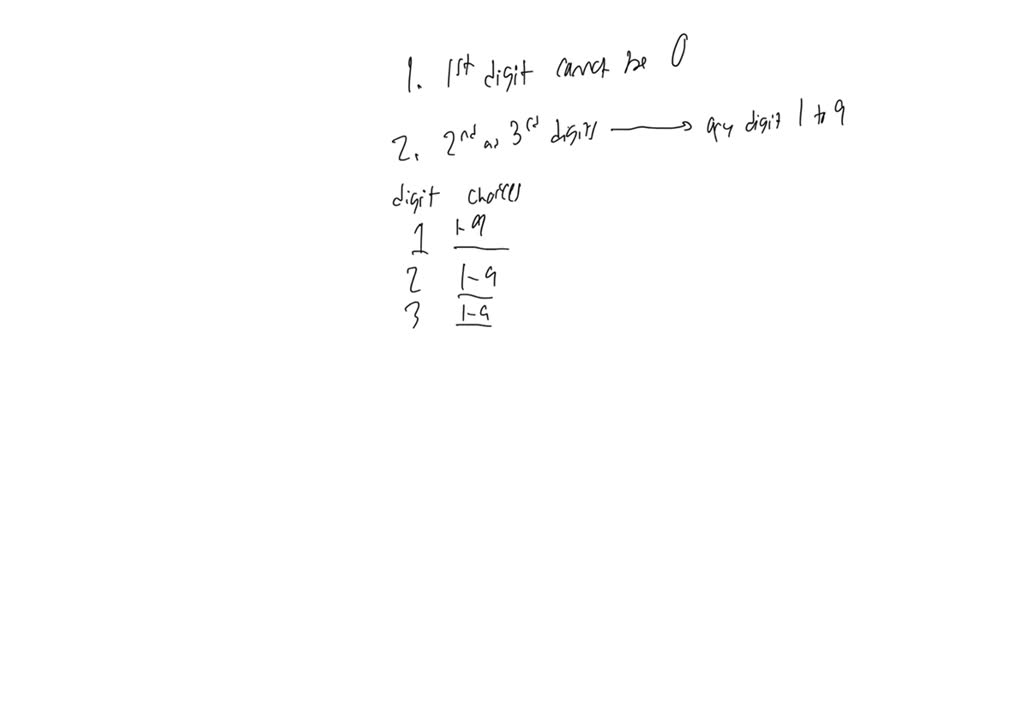 1. 1st digit cannot be 0
2. 2nd and 3rd digits → any digit 1 to 9
digit choices
1 1-9
2 1-9
3 1-9